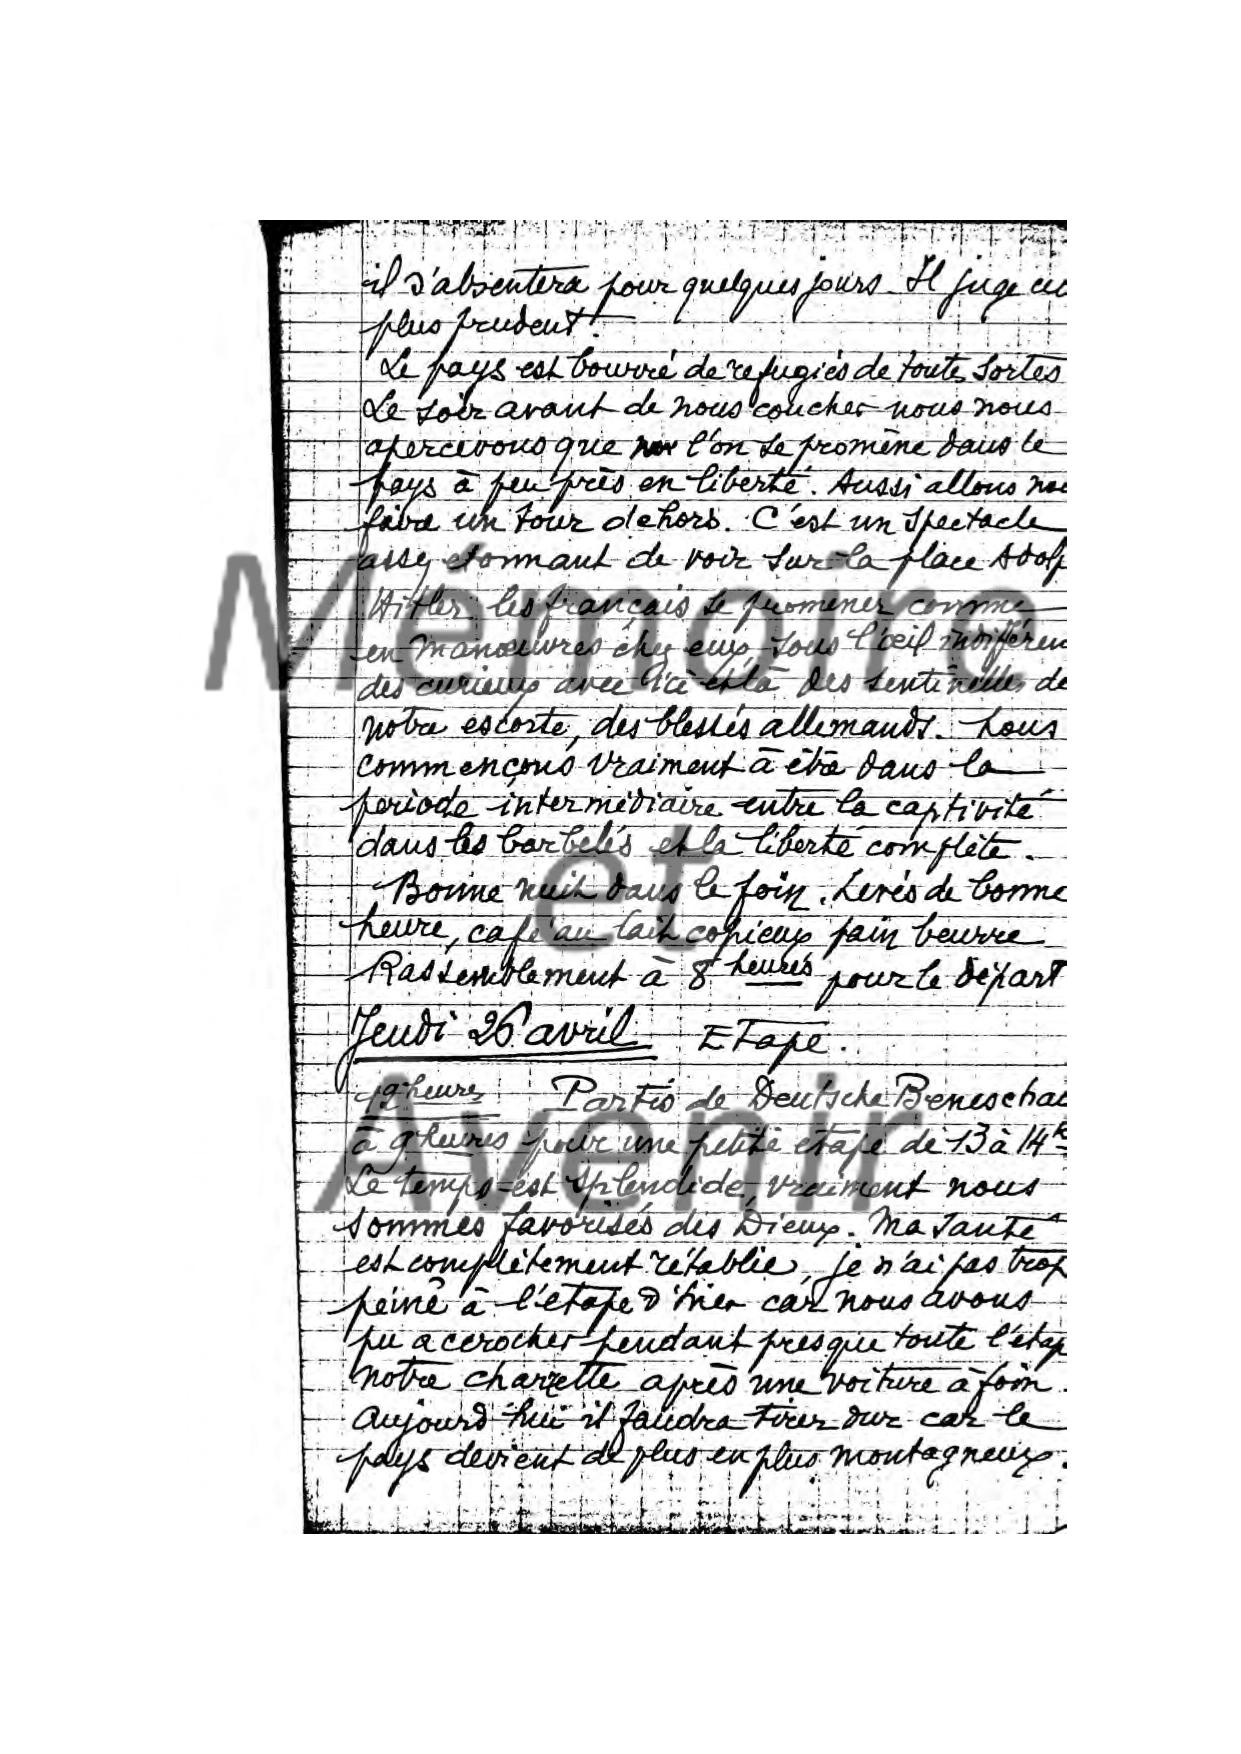 il s'absentera pour quelques jours. Il juge ce
plus prudent !
Le pays est bourré de refugiés de toutes sortes
Le soir avant de nous coucher nous nous
apercevons que l'on se promène dans le
pays à peu près en liberté. Aussi allons nou
faire un tour dehors. C'est un spectacle
assez étonnant de voir sur la place Adolf
Hitler les français se promener comme
en manœuvres chez eux, sous l'œil indifféren
des curieux avec ça et là des sentinelles de
notre escorte, des blessés allemands. Nous
commençons vraiment à être dans la
periode intermédiaire entre la captivité
dans les barbelés et la liberté complète.
Bonne nuit dans le foin. Levés de bonne
heure, café au lait copieux pain beurre
Rassemblement à 8 heures pour le départ
Jeudi 26 avril Etape.
heures Partis de Deutsche Beneschau
à 9 heures pour une petite étape de 13 à 14 k
Le temps est splendide, vraiment nous
sommes favorisés des Dieux. Ma santé
est complètement rétablie, je n'ai pas trop
peiné à l'étape d'hier car nous avons
pu accrocher pendant presque toute l'étap
notre charrette après une voiture à foin.
Aujourd'hui il faudra tirer dur car le
pays devient de plus en plus montagneux.
Mémoire
et
Avenir